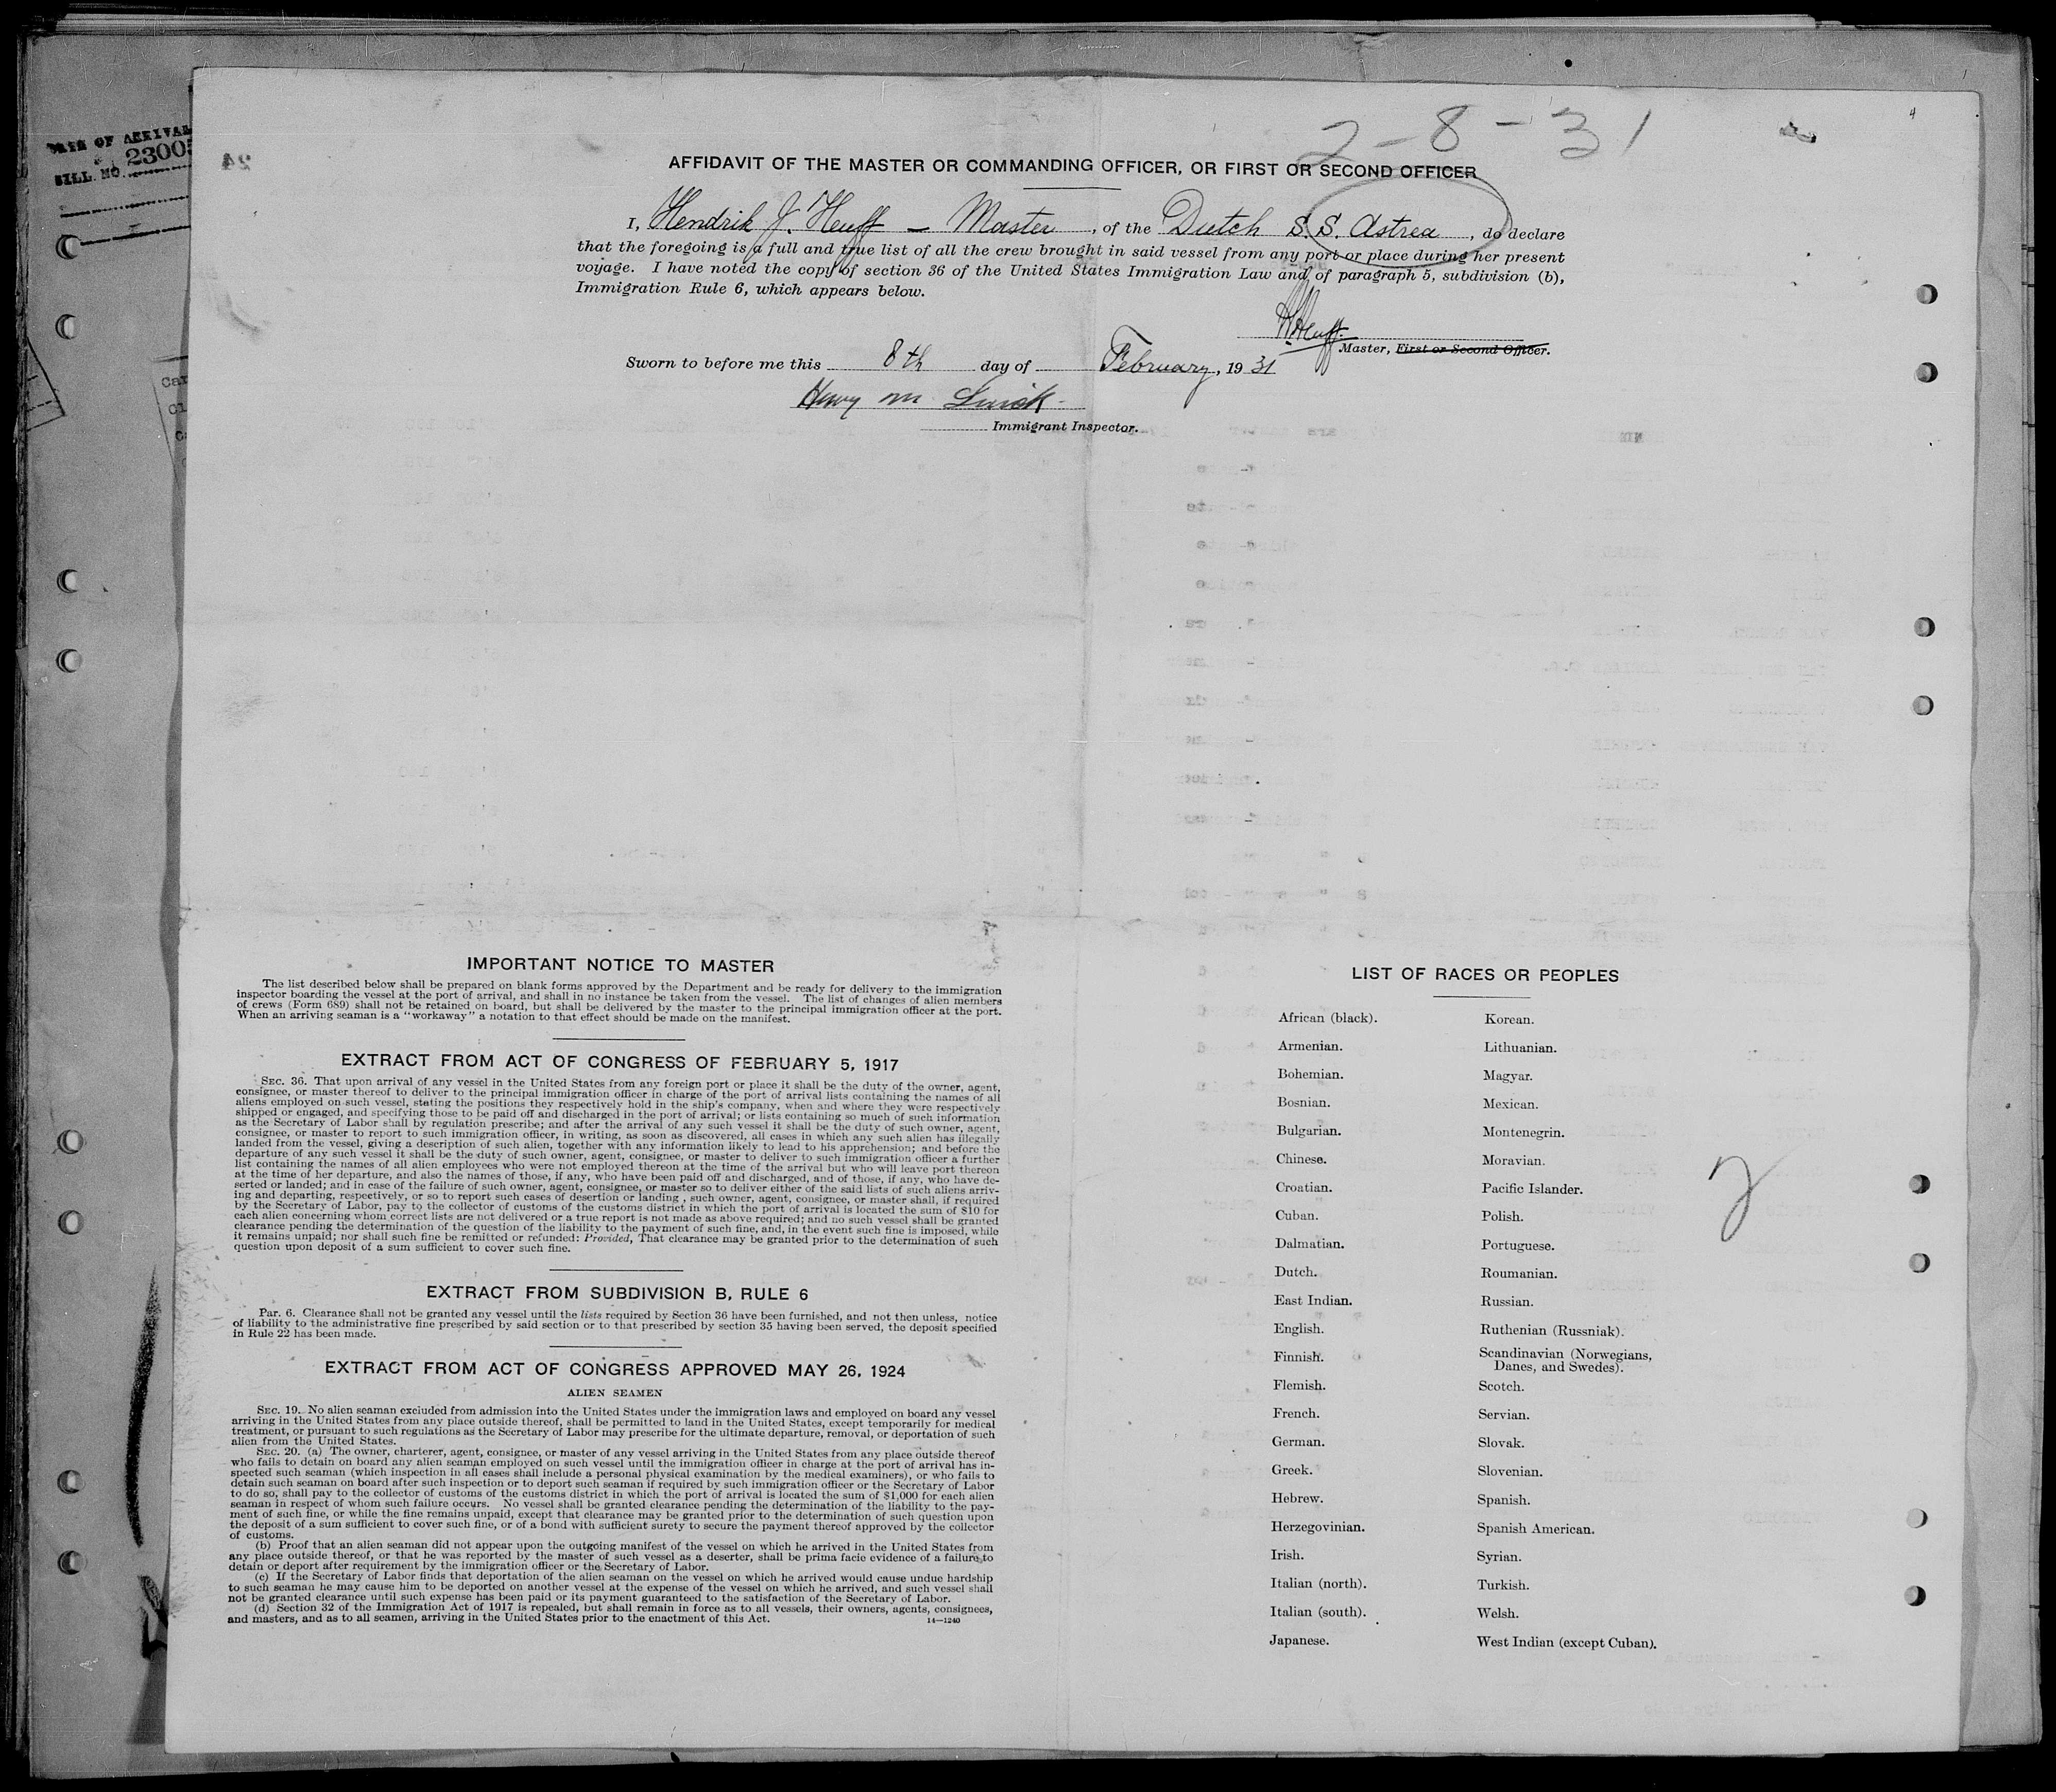 2-8-31
4
DATE OF ARRIVAL
23005
BILL NO.
24
AFFIDAVIT OF THE MASTER OR COMMANDING OFFICER, OR FIRST OR SECOND OFFICER
I, Hendrik J. Heuff – Master, of the Dutch S.S. Astrea, do declare
that the foregoing is a full and true list of all the crew brought in said vessel from any port or place during her present
voyage. I have noted the copy of section 36 of the United States Immigration Law and of paragraph 5, subdivision (b),
Immigration Rule 6, which appears below.
HHeuff.
Master, First or Second Officer.
Sworn to before me this 8th day of February, 1931
Henry M
Immigrant Inspector.
IMPORTANT NOTICE TO MASTER
The list described below shall be prepared on blank forms approved by the Department and be ready for delivery to the immigration
inspector boarding the vessel at the port of arrival, and shall in no instance be taken from the vessel. The list of changes of alien members
of crews (Form 689) shall not be retained on board, but shall be delivered by the master to the principal immigration officer at the port.
When an arriving seaman is a "workaway" a notation to that effect should be made on the manifest.
EXTRACT FROM ACT OF CONGRESS OF FEBRUARY 5, 1917
SEC. 36. That upon arrival of any vessel in the United States from any foreign port or place it shall be the duty of the owner, agent,
consignee, or master thereof to deliver to the principal immigration officer in charge of the port of arrival lists containing the names of all
aliens employed on such vessel, stating the positions they respectively hold in the ship's company, when and where they were respectively
shipped or engaged, and specifying those to be paid off and discharged in the port of arrival; or lists containing so much of such information
as the Secretary of Labor shall by regulation prescribe; and after the arrival of any such vessel it shall be the duty of such owner, agent,
consignee, or master to report to such immigration officer, in writing, as soon as discovered, all cases in which any such alien has illegally
landed from the vessel, giving a description of such alien, together with any information likely to lead to his apprehension; and before the
departure of any such vessel it shall be the duty of such owner, agent, consignee, or master to deliver to such immigration officer a further
list containing the names of all alien employees who were not employed thereon at the time of the arrival but who will leave port thereon
at the time of her departure, and also the names of those, if any, who have been paid off and discharged, and of those, if any, who have de-
serted or landed; and in case of the failure of such owner, agent, consignee, or master so to deliver either of the said lists of such aliens arriv-
ing and departing, respectively, or so to report such cases of desertion or landing, such owner, agent, consignee, or master shall, if required
by the Secretary of Labor, pay to the collector of customs of the customs district in which the port of arrival is located the sum of $10 for
each alien concerning whom correct lists are not delivered or a true report is not made as above required; and no such vessel shall be granted
clearance pending the determination of the question of the liability to the payment of such fine, and, in the event such fine is imposed, while
it remains unpaid; nor shall such fine be remitted or refunded: Provided, That clearance may be granted prior to the determination of such
question upon deposit of a sum sufficient to cover such fine.
EXTRACT FROM SUBDIVISION B, RULE 6
Par. 6. Clearance shall not be granted any vessel until the lists required by Section 36 have been furnished, and not then unless, notice
of liability to the administrative fine prescribed by said section or to that prescribed by section 35 having been served, the deposit specified
in Rule 22 has been made.
EXTRACT FROM ACT OF CONGRESS APPROVED MAY 26, 1924
ALIEN SEAMEN
SEC. 19. No alien seaman excluded from admission into the United States under the immigration laws and employed on board any vessel
arriving in the United States from any place outside thereof, shall be permitted to land in the United States, except temporarily for medical
treatment, or pursuant to such regulations as the Secretary of Labor may prescribe for the ultimate departure, removal, or deportation of such
alien from the United States.
SEC. 20. (a) The owner, charterer, agent, consignee, or master of any vessel arriving in the United States from any place outside thereof
who fails to detain on board any alien seaman employed on such vessel until the immigration officer in charge at the port of arrival has in-
spected such seaman (which inspection in all cases shall include a personal physical examination by the medical examiners), or who fails to
detain such seaman on board after such inspection or to deport such seaman if required by such immigration officer or the Secretary of Labor
to do so, shall pay to the collector of customs of the customs district in which the port of arrival is located the sum of $1,000 for each alien
seaman in respect of whom such failure occurs. No vessel shall be granted clearance pending the determination of the liability to the pay-
ment of such fine, or while the fine remains unpaid, except that clearance may be granted prior to the determination of such question upon
the deposit of a sum sufficient to cover such fine, or of a bond with sufficient surety to secure the payment thereof approved by the collector
of customs.
(b) Proof that an alien seaman did not appear upon the outgoing manifest of the vessel on which he arrived in the United States from
any place outside thereof, or that he was reported by the master of such vessel as a deserter, shall be prima facie evidence of a failure to
detain or deport after requirement by the immigration officer or the Secretary of Labor.
(c) If the Secretary of Labor finds that deportation of the alien seaman on the vessel on which he arrived would cause undue hardship
to such seaman he may cause him to be deported on another vessel at the expense of the vessel on which he arrived, and such vessel shall
not be granted clearance until such expense has been paid or its payment guaranteed to the satisfaction of the Secretary of Labor.
(d) Section 32 of the Immigration Act of 1917 is repealed, but shall remain in force as to all vessels, their owners, agents, consignees,
and masters, and as to all seamen, arriving in the United States prior to the enactment of this Act.
14—1240
LIST OF RACES OR PEOPLES
African (black).
Armenian.
Bohemian.
Bosnian.
Bulgarian.
Chinese.
Croatian.
Cuban.
Dalmatian.
Dutch.
East Indian.
English.
Finnish.
Flemish.
French.
German.
Greek.
Hebrew.
Herzegovinian.
Irish.
Italian (north).
Italian (south).
Japanese.
Korean.
Lithuanian.
Magyar.
Mexican.
Montenegrin.
Moravian.
Pacific Islander.
Polish.
Portuguese.
Roumanian.
Russian.
Ruthenian (Russniak).
Scandinavian (Norwegians,
Danes, and Swedes).
Scotch.
Servian.
Slovak.
Slovenian.
Spanish.
Spanish American.
Syrian.
Turkish.
Welsh.
West Indian (except Cuban).
2